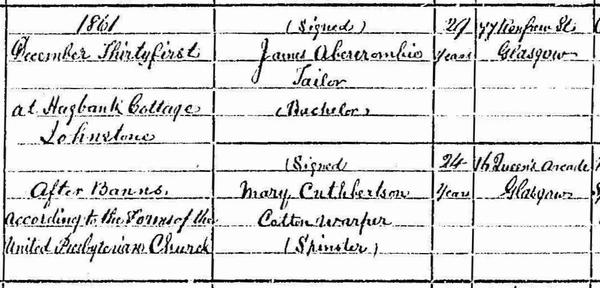 1861
December Thirtyfirst
at Hagbank Cottage
Johnstone
After Banns.
According to the Forms of the
United Presbyterian Church
(Signed)
James Abercrombie
Tailor
(Bachelor)
(Signed
Mary Cuthbertson
Cotton Warper
(Spinster)
29
Years
24
Years
77 Renfrew St
Glasgow
16 Queen's Arcade
Glasgow